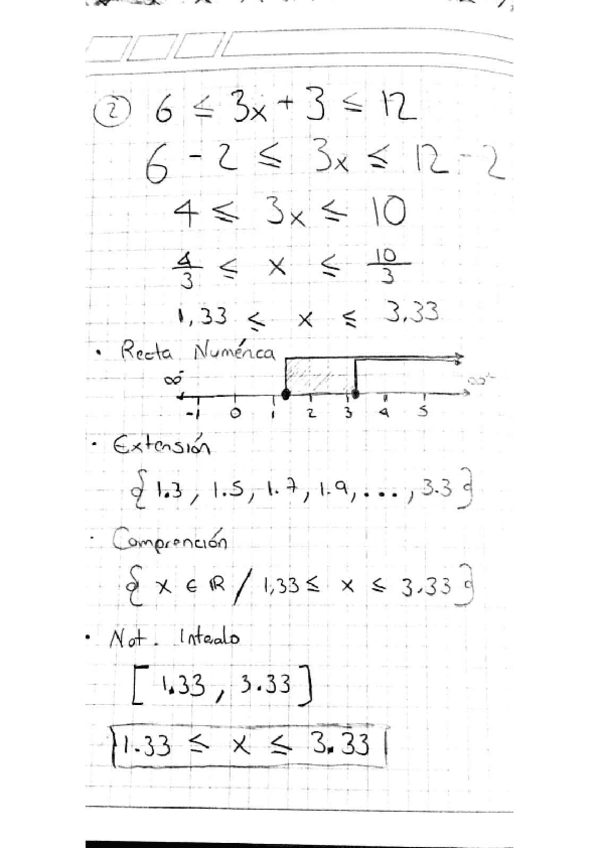 ② 6 ≤ 3x + 3 ≤ 12
6 - 2 ≤ 3x ≤ 12 - 2
4 ≤ 3x ≤ 10
4/3 ≤ x ≤ 10/3
1,33 ≤ x ≤ 3,33
• Recta Numérica
∞⁻ ∞⁺
-1 0 1 2 3 4 5
• Extensión
{1.3, 1.5, 1.7, 1.9, ..., 3.3}
• Comprención
{x ∈ ℝ / 1,33 ≤ x ≤ 3.33}
• Not. Intealo
[1.33, 3.33]
1.33 ≤ x ≤ 3.33